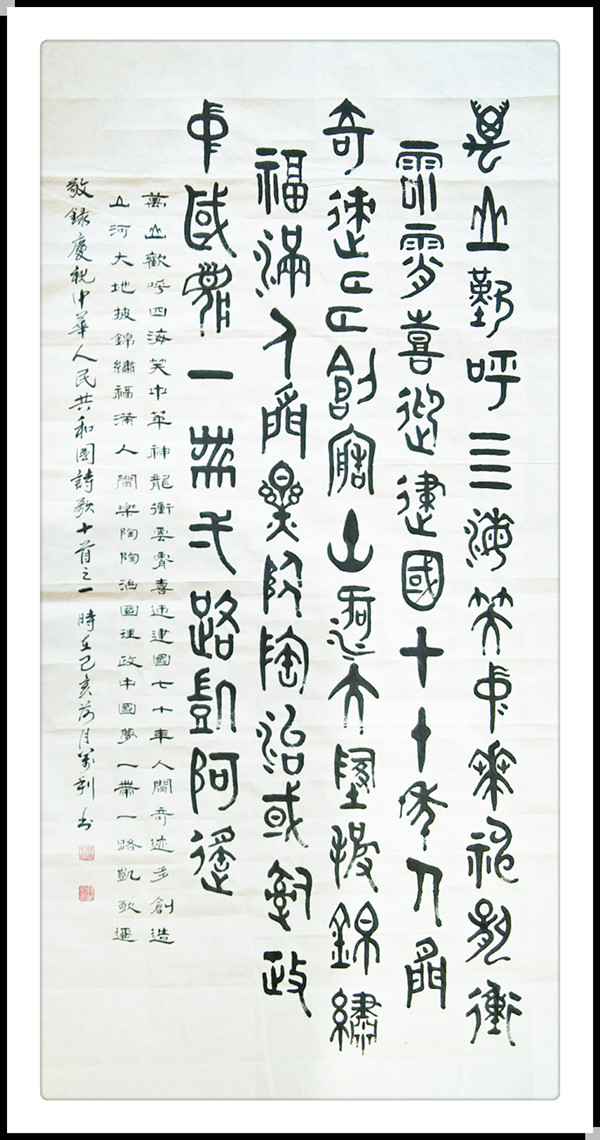 萬山歡呼四海笑中華神龍衝
雲霄喜迎建國七十年人間
奇迹多創造山河大地披錦繡
福滿人間樂陶陶治國理政
中國夢一帶一路凱歌
萬山歡呼四海笑中華神龍衝雲霄喜迎建國七十年人間奇迹多創造
山河大地披錦繡福滿人間樂陶陶治國理政中國夢一帶一路凱歌
敬錄慶祝中華人民共和國詩歌十首之一 時在己亥荷月 書